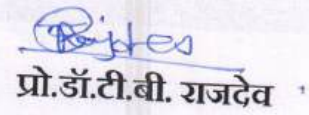 प्रो.डॉ.टी.बी. राजदेव